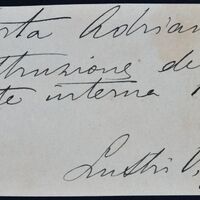 rta Adrian
struzione de
te interna
Lustri V.